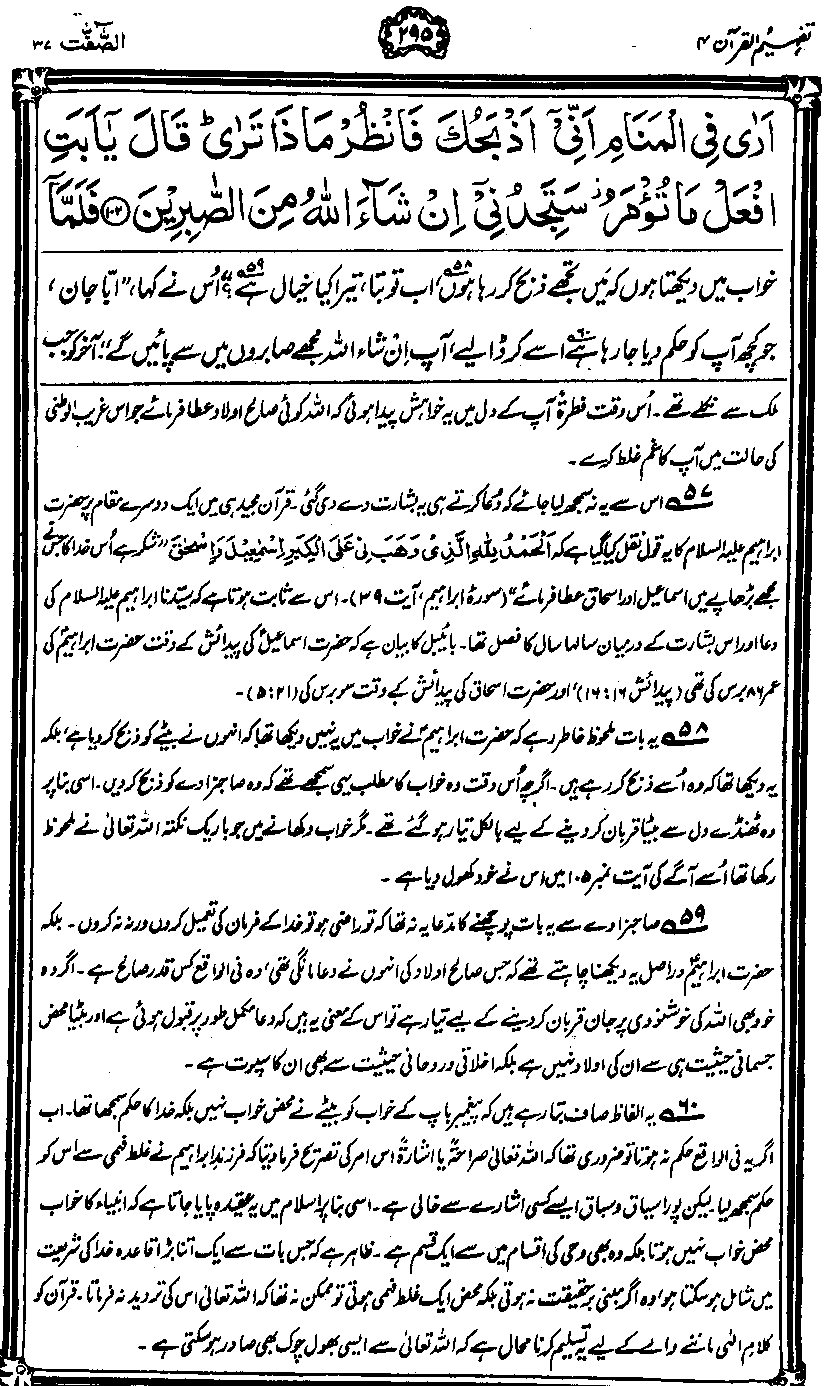 تفہیم القرآن ۴
۲۹۵
الصّٰفّٰت ۳۷
اَرٰی فِی الْمَنَامِ اَنِّیْٓ اَذْبَحُكَ فَانْظُرْ مَاذَا تَرٰیؕ قَالَ یٰۤاَبَتِ
افْعَلْ مَا تُؤْمَرُ٘ سَتَجِدُنِیْۤ اِنْ شَآءَ اللّٰهُ مِنَ الصّٰبِرِیْنَ ﴿۱۰۲﴾ فَلَمَّاۤ
خواب میں دیکھتا ہوں کہ مَیں تجھے ذبح کر رہا ہوں۵۸، اب تو بتا، تیرا کیا خیال ہے؟۵۹“ اُس نے کہا، ”ابّا جان،
جو کچھ آپ کو حکم دیا جا رہا ہے۶۰ اسے کر ڈالیے، آپ اِن شاء اللہ مجھے صابروں میں سے پائیں گے“۔ آخر کو جب
ملک سے نکلے تھے۔ اُس وقت فطرۃً آپ کے دل میں یہ خواہش پیدا ہوئی کہ اللہ کوئی صالح اولاد عطا فرمائے جو اس غریب الوطنی
کی حالت میں آپ کا غم غلط کرے۔
۵۷ اس سے یہ نہ سمجھ لیا جائے کہ دُعا کرتے ہی یہ بشارت دے دی گئی۔ قرآن مجید ہی میں ایک دوسرے مقام پر حضرت
ابراہیم علیہ السلام کا یہ قول نقل کیا گیا ہے کہ اَلْحَمْدُ لِلّٰہِ الَّذِیْ وَھَبَ لِیْ عَلَی الْکِبَرِ اِسْمٰعِیْلَ وَاِسْحٰقَ ”شکر ہے اُس خدا کا جس نے
مجھے بڑھاپے میں اسماعیل اور اسحاق عطا فرمائے“ (سورۂ ابراہیم، آیت ۳۹)۔ اس سے ثابت ہوتا ہے کہ سیّدنا ابراہیم علیہ السلام کی
دعا اور اس بشارت کے درمیان سالہا سال کا فصل تھا۔ بائیبل کا بیان ہے کہ حضرت اسماعیلؑ کی پیدائش کے وقت حضرت ابراہیمؑ کی
عمر ۸۶ برس کی تھی (پیدائش ۱۶:۱۶)، اور حضرت اسحاق کی پیدائش کے وقت سو برس کی (۲۱:۵)۔
۵۸ یہ بات ملحوظ خاطر رہے کہ حضرت ابراہیمؑ نے خواب میں یہ نہیں دیکھا تھا کہ انہوں نے بیٹے کو ذبح کر دیا ہے، بلکہ
یہ دیکھا تھا کہ وہ اُسے ذبح کر رہے ہیں۔ اگرچہ اُس وقت وہ خواب کا مطلب یہی سمجھے تھے کہ وہ صاجزادے کو ذبح کر دیں۔ اسی بنا پر
وہ ٹھنڈے دل سے بیٹا قربان کر دینے کے لیے بالکل تیار ہو گئے تھے۔ مگر خواب دکھانے میں جو باریک نکتہ اللہ تعالیٰ نے ملحوظ
رکھا تھا اُسے آگے کی آیت نمبر ۱۰۵ میں اس نے خود کھول دیا ہے۔
۵۹ صاجزادے سے یہ بات پوچھنے کا مدّعا یہ نہ تھا کہ تو راضی ہو تو خدا کے فرمان کی تعمیل کروں ورنہ نہ کروں۔ بلکہ
حضرت ابراہیمؑ دراصل یہ دیکھنا چاہتے تھے کہ جس صالح اولاد کی انہوں نے دعا مانگی تھی، وہ فی الواقع کس قدر صالح ہے۔ اگر وہ
خود بھی اللہ کی خوشنودی پر جان قربان کر دینے کے لیے تیار ہے تو اس کے معنی یہ ہیں کہ دعا مکمل طور پر قبول ہوئی ہے اور بیٹا محض
جسمانی حیثیت ہی سے ان کی اولاد نہیں ہے بلکہ اخلاقی و روحانی حیثیت سے بھی ان کا سپوت ہے۔
۶۰ یہ الفاظ صاف بتا رہے ہیں کہ پیغمبر باپ کے خواب کو بیٹے نے محض خواب نہیں بلکہ خدا کا حکم سمجھا تھا۔ اب
اگر یہ فی الواقع حکم نہ ہوتا تو ضروری تھا کہ اللہ تعالیٰ صراحۃً یا اشارۃً اس امر کی تصریح فرما دیتا کہ فرزند ابراہیم نے غلط فہمی سے اس کو
حکم سمجھ لیا۔ لیکن پورا سیاق و سباق ایسے کسی اشارے سے خالی ہے۔ اسی بنا پر اسلام میں یہ عقیدہ پایا جاتا ہے کہ انبیاء کا خواب
محض خواب نہیں ہوتا بلکہ وہ بھی وحی کی اقسام میں سے ایک قسم ہے۔ ظاہر ہے کہ جس بات سے ایک اتنا بڑا قاعدہ خدا کی شریعت
میں شامل ہو سکتا ہو، وہ اگر مبنی بر حقیقت نہ ہوتی بلکہ محض ایک غلط فہمی ہوتی تو ممکن نہ تھا کہ اللہ تعالیٰ اس کی تردید نہ فرماتا۔ قرآن کو
کلامِ الٰہی ماننے والے کے لیے یہ تسلیم کرنا محال ہے کہ اللہ تعالیٰ سے ایسی بھول چوک بھی صادر ہو سکتی ہے۔